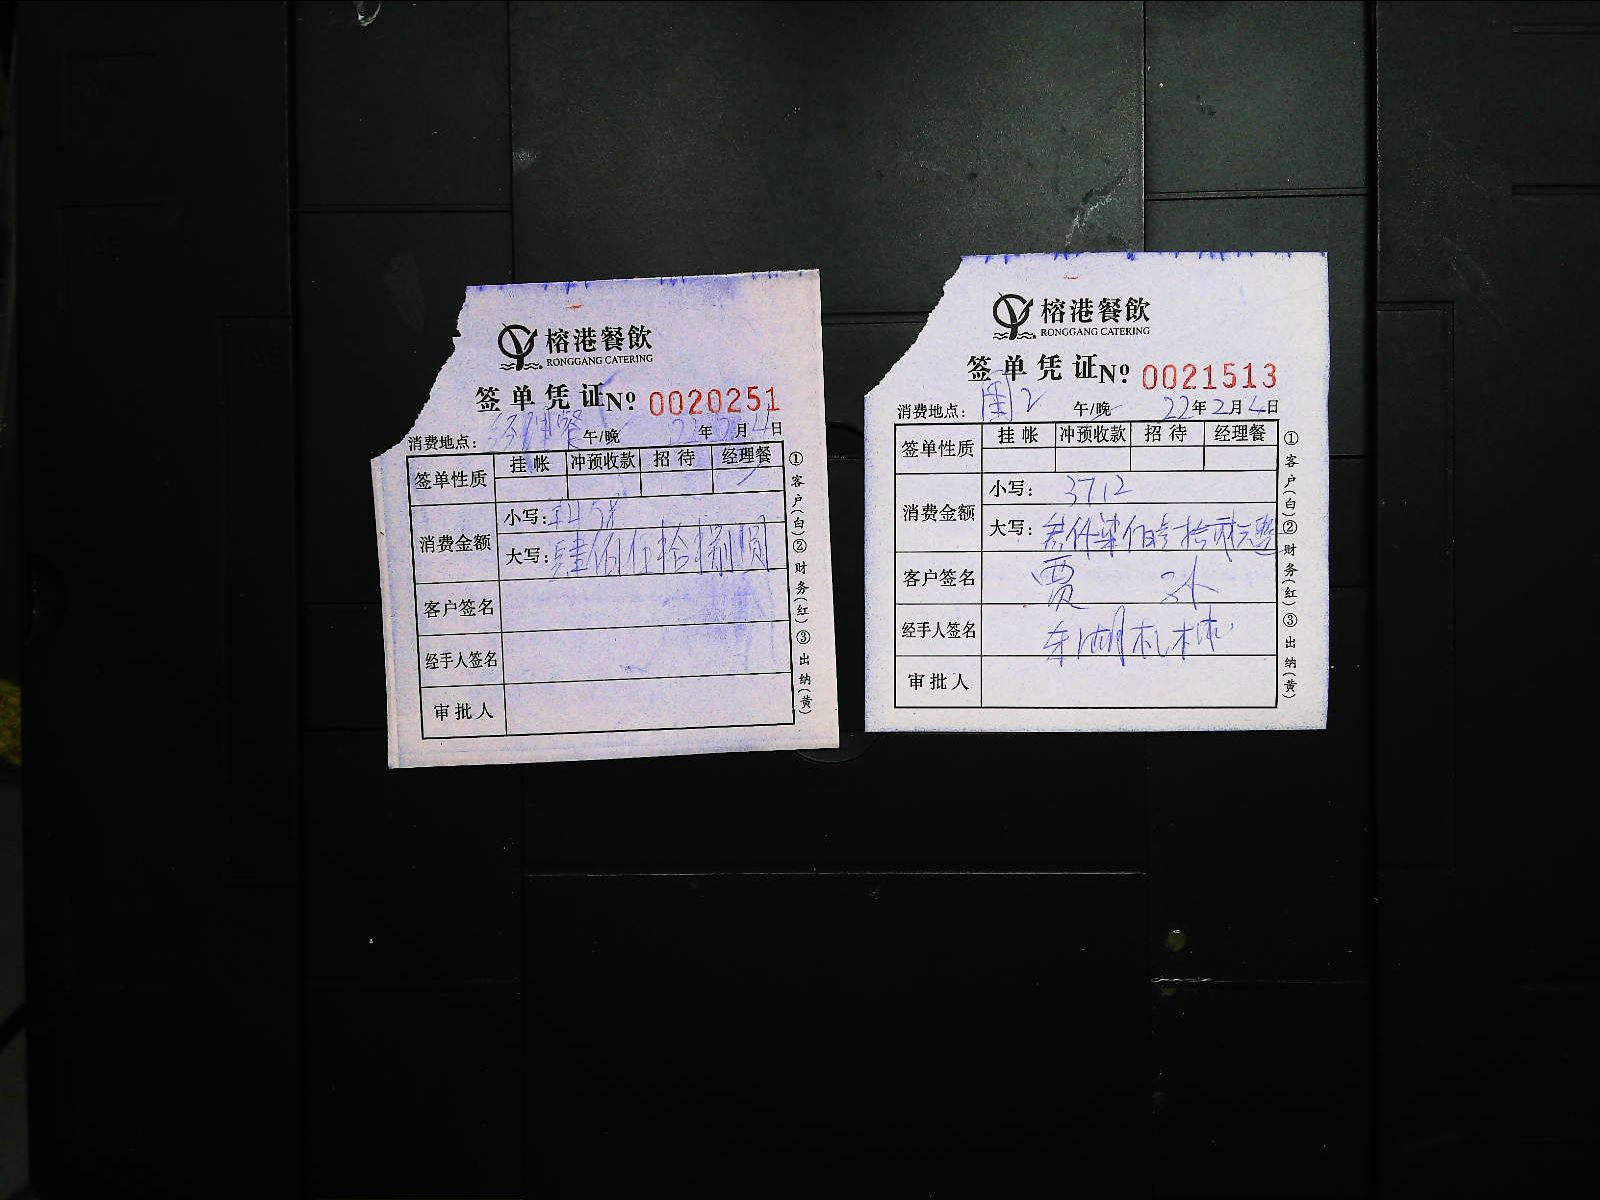 榕港餐飲
RONGGANG CATERING
签单凭证№ 0020251
消费地点: 经理餐 午/晚 22年2月4日
签单性质 挂帐 冲预收款 招待 经理餐
消费金额
小写:
大写: 肆佰伍拾捌圆
客户签名
经手人签名
审批人
①客户(白)②财务(红)③出纳(黄)
榕港餐飲
RONGGANG CATERING
签单凭证№ 0021513
消费地点: 2 午/晚 22年2月4日
签单性质 挂帐 冲预收款 招待 经理餐
消费金额
小写: 3712
大写: 叁仟柒佰壹拾贰元整
客户签名 贾
经手人签名
审批人
①客户(白)②财务(红)③出纳(黄)